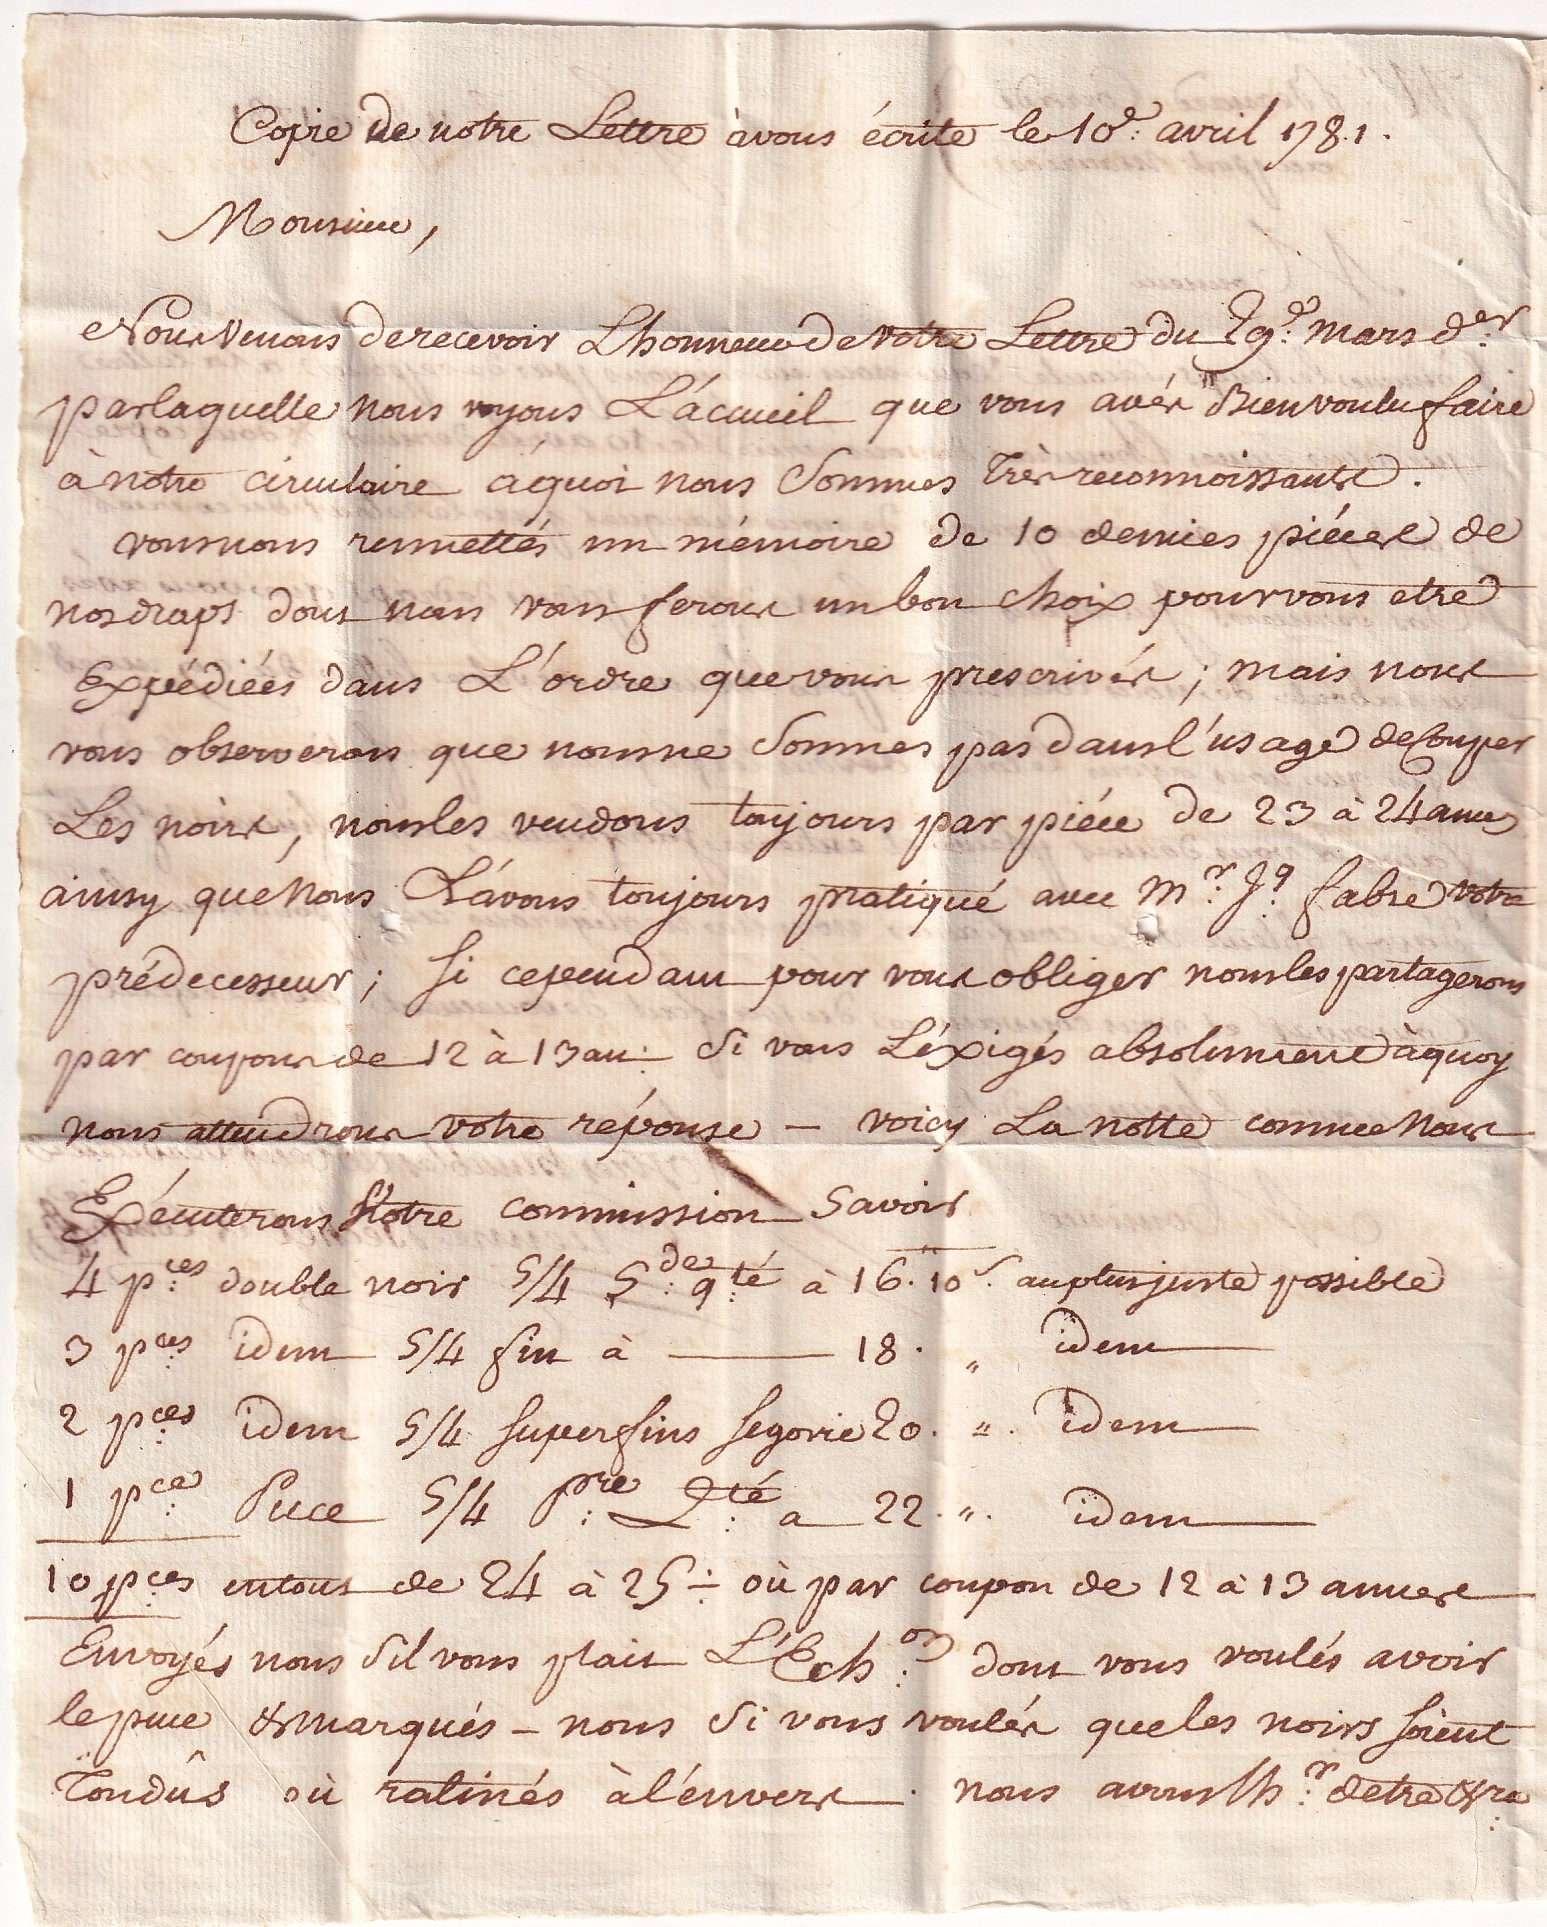 Copie de notre Lettre à vous écrite le 10e. avril 1781.
Monsieur,
Nous Venons de recevoir L'honneur de Votre Lettre du 29e. mars der.
par laquelle nous voyons L'ácueil que vous avés Bien voulu faire
à notre circulaire áquoi nous sommes très reconnoissants.
vous nous remettés un mémoire de 10 demies piéces de
nos draps dont nous vous ferons un bon choix pour vous etre
Expédiées dans L'ordre que vous prescrivés; mais nous
vous observerons que nous ne sommes pas dans l'usage de Couper
Les noirs, nous les vendons toujours par piéce de 23 à 24 aunes
ainsy que Nous L'ávons toujours pratiqué avec Mr. Jq. fabre votre
prédecesseur; si cependant pour vous obliger nous les partagerons
par coupons de 12 à 13 au: si vous L'éxigés absolument à quoy
nous attendrons votre réponse — voicy La notte comme Nous
Exécuterons Votre commission Savoir
4 pces. double noir 5/4 Sde. qté. à 16.10s. au plus juste possible
3 pces. idem 5/4 fin à — 18. " idem
2 pces. idem 5/4 superfins segovie 20. " idem
1 pce. Puce 5/4 pre. Qté. a 22. " idem
10 pces. en tout de 24 à 25 où par coupon de 12 à 13 aunes
Envoyés nous s'il vous plait L'Echon. dont vous voulés avoir
le puce & marqués - nous si vous voulés que les noirs soient
Tondûs où ratinés à l'énvers. nous avons lhr. detre &ra.